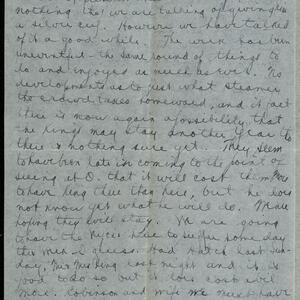 nothing but we are talking of giving her
a silver cup. However we have talked
of it a good while. The week has been
uneventful - the same round of things to
do and enjoyed as much as ever. No
developments as to just what steamer
the crowd takes homeward, and in fact
there is now again a possibility that
the Rings may stay another year so
there is nothing sure yet. They seem
to have been late in coming to the point of
seeing it
that it will cost them more
to have long there than here, but he does
not know yet what he will do. We are
hoping they will stay. We are going
to have the here to supper some day
this week I guess. Had Hatch last Sun-
day, Mr
last night and it is
good to do so but it does cost
more. Robinson and wife we must have